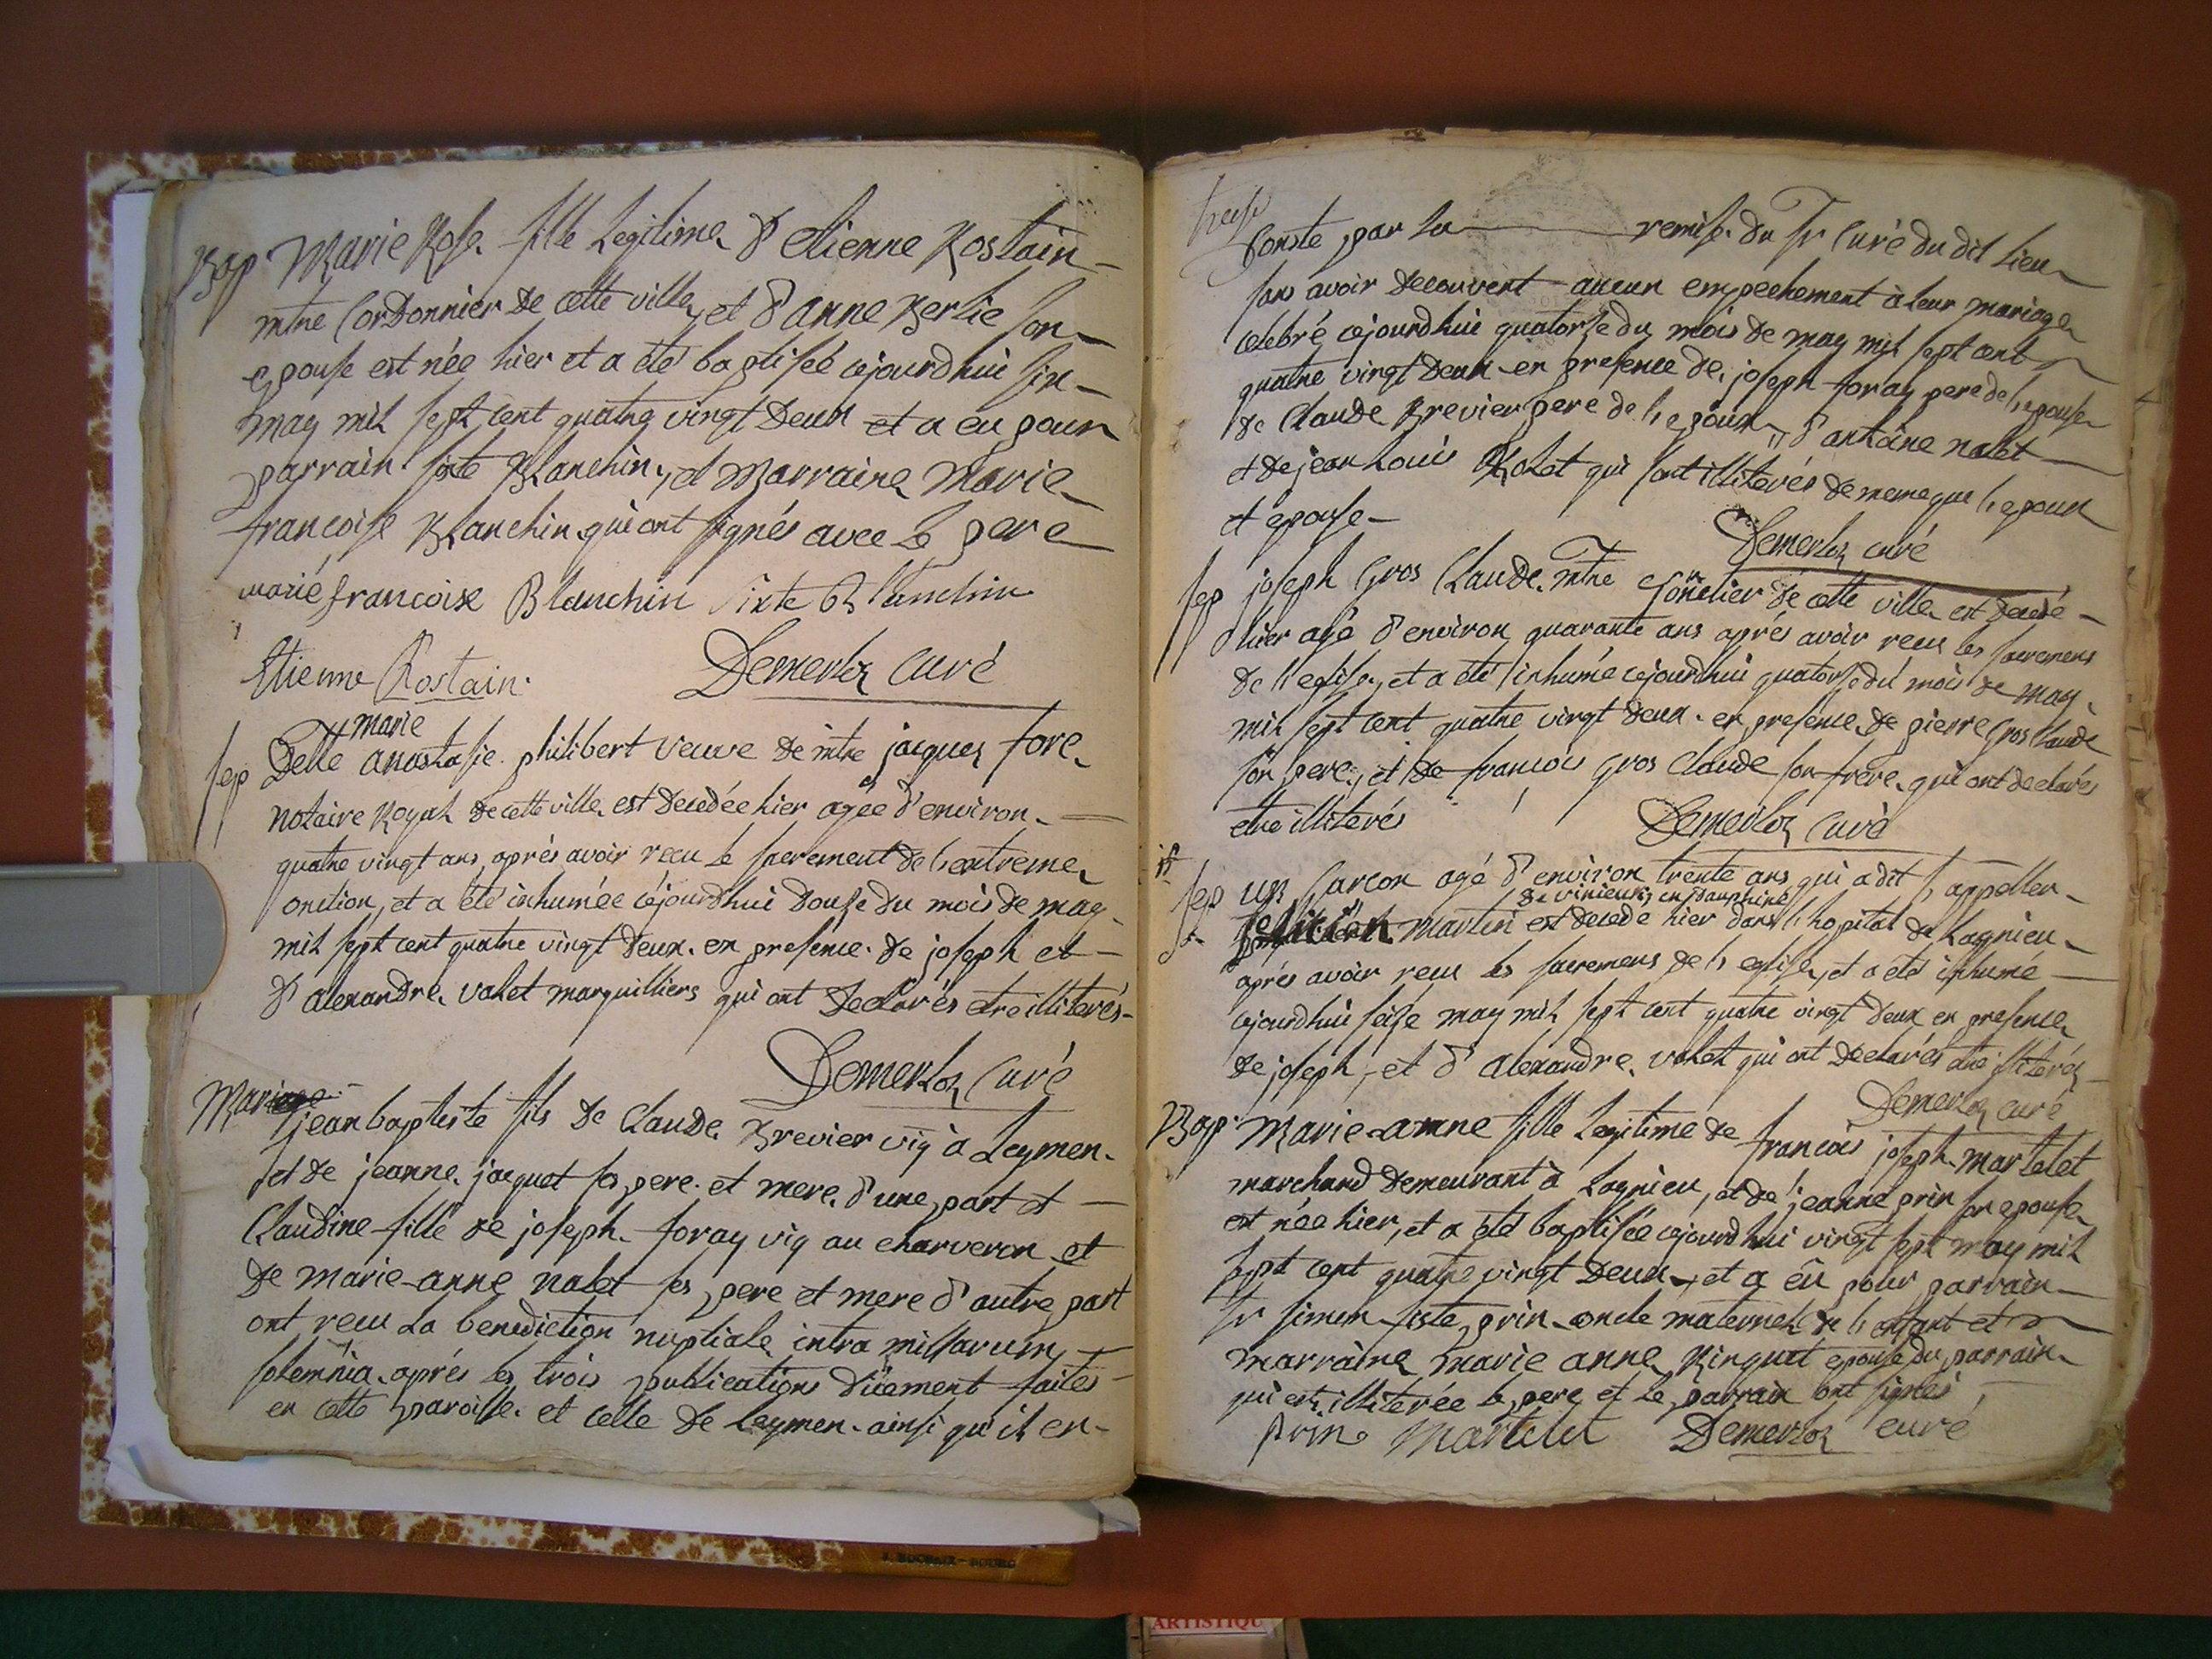 Bap Marie Rose fille Legitime d'etienne Rostain
mtre Cordonnier de cette ville, et d'anne Berlie son
epouse est née hier et a été baptisée cejourdhui six
may mil sept cent quatre vingt deux et a eu pour
parrain sixte Blanchin, et Marraine Marie
francoise Blanchin qui ont signés avec le pere
marie francoise Blanchin Sixte Blanchin
Etienne Rostain. Demerloz Curé
marie
sep Delle anastasie philibert veuve de mtre jacques fore
notaire Royal de cette ville est decedée hier agée d'environ
quatre vingt ans, aprés avoir recu le sacrement de l'extreme
onction, et a été inhumée cejourdhui douse du mois de may
mil sept cent quatre vingt deux. en presence de joseph et
d'alexandre valet marguilliers qui ont declarés etre illiterés
Demerloz Curé
Mariage
jean baptiste fils de Claude Brevier vig à Leymen
et de jeanne jacquet ses pere et mere d'une part et
Claudine fille de joseph foray vig au charveron et
de marie-anne nalet ses pere et mere d'autre part
ont recu la benediction nuptiale intra missarum
solemnia aprés les trois publications düement faites
en cette paroisse et celle de leymen ainsi qu'il en
treise
Conste par la remise du sr Curé du dit lieu
sans avoir decouvert aucun empechement à leur mariage
celebré cejourdhui quatorse du mois de may mil sept cent
quatre vingt deux en presence de joseph foray pere de l'epouse
de Claude Brevier pere de l'epoux, d'antoine nalet
et de jean Louis Rolet qui sont illiterés de meme que l'epoux
et epouse
Demerloz curé
sep joseph Gros Claude mtre Tonnelier de cette ville est decedé
hier agé d'environ quarante ans aprés avoir recu les sacremens
de l'eglise, et a été inhumé cejourdhui quatorse du mois de may
mil sept cent quatre vingt deux. en presence de pierre Gros Claude
son pere, et de francois Gros Claude son frere qui ont declarés
etre illiterés Demerloz Curé
sep un Garcon agé d'environ trente ans qui a dit s'appeller
de vinieu en Dauphiné
felicien martin est decedé hier dans l'hopital de Lagnieu
aprés avoir recu les sacremens de l'eglise, et a été inhumé
cejourdhui seise may mil sept cent quatre vingt deux en presence
de joseph, et d'alexandre valet qui ont declarés etre illiterés
Demerloz curé
Bap Marie-anne fille Legitime de francois joseph martelet
marchand demeurant à Lagnieu, et de jeanne prin son epouse
est née hier, et a été baptisée cejourdhui vingt sept may mil
sept cent quatre vingt deux, et a eü pour parrain
sr simon sixte prin oncle maternel de l'enfant et
marraine marie anne Ringuet epouse du parrain
qui est illiterée le pere et le parrain ont signés
prin Martelet Demerloz curé
ARTISTIQU